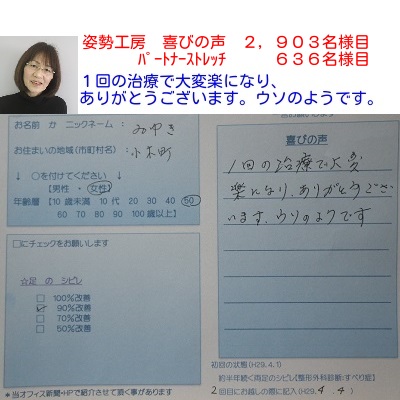 姿勢工房　喜びの声　２，９０３名様目
ﾊﾟｰﾄﾅｰｽﾄﾚｯﾁ　６３６名様目
１回の治療で大変楽になり、
ありがとうございます。ウソのようです。
お名前 か ニックネーム： みゆき
お住まいの地域(市町村名)： 小木町
↓　○を付けてください　↓
【男性 ・ 女性】
年齢層【10 歳未満 10 代 20 30 40 50
60 70 80 90 100歳以上】
□にチェックをお願いします
☆足 の シビレ
□ 100%改善
☑ 90%改善
□ 70%改善
□ 50%改善
＊当オフィス新聞・HPで紹介させて頂く事があります
喜びの声
1回の治療で大変
楽になり、ありがとうござい
います、ウソのようです
初回の状態(H29.4.1)
約半年続く両足のシビレ【整形外科診断:すべり症】
2回目にお越しの際に記入(H29. 4 . 4)